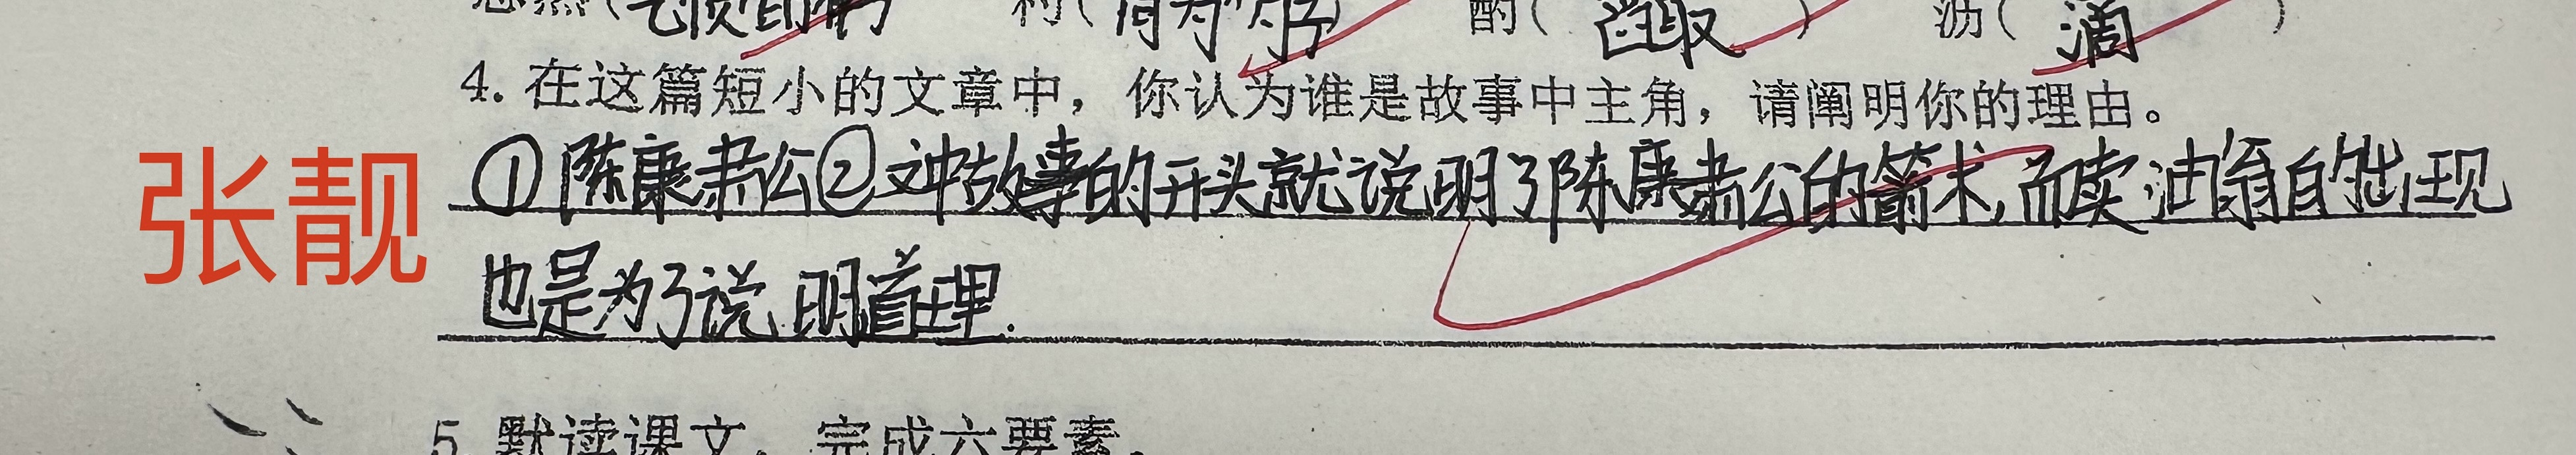 忿然(气愤的样 射( 酌( 舀取 ) 沥( 滴 )
4. 在这篇短小的文章中，你认为谁是故事中主角，请阐明你的理由。
张靓
①陈康肃公②文中故事的开头就说明了陈康肃公的箭术,而卖油翁的出现
也是为了说明道理.
5. 默读课文，完成六要素.